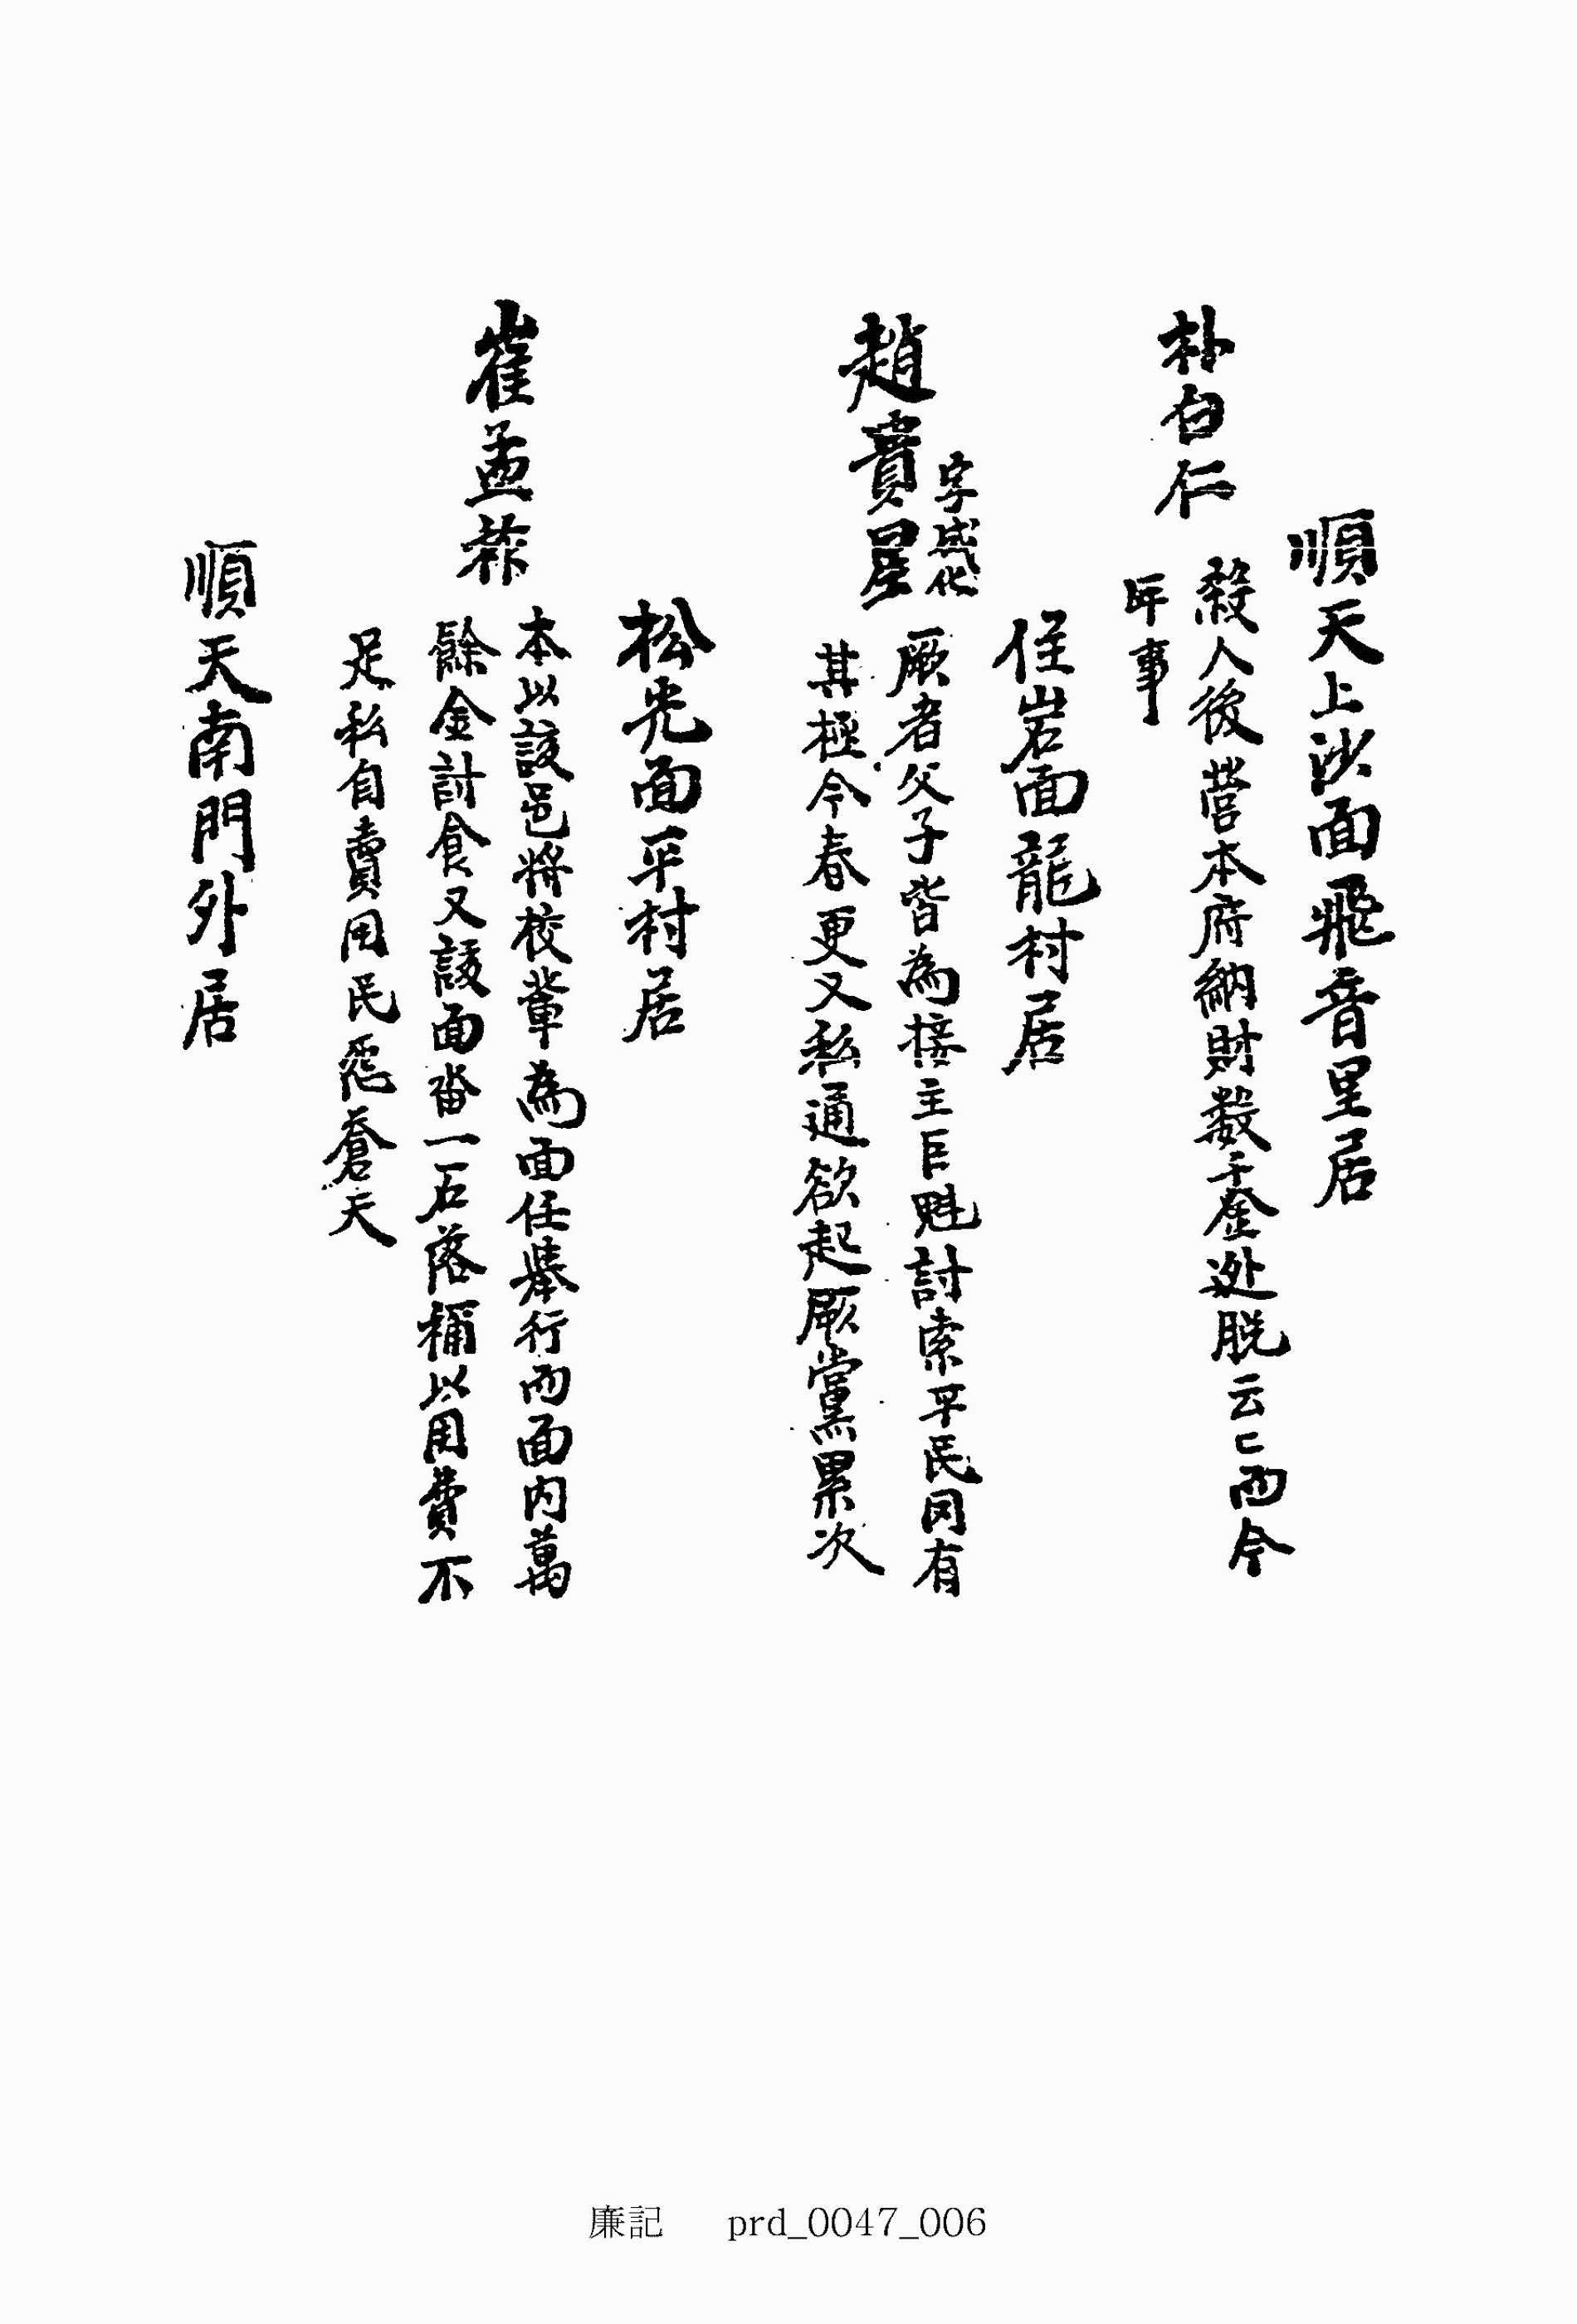 順天上沙面飛音里居
朴白仁
殺人後營本府納財數千金逃脫云云而今
年事
住岩面龍村居
趙寶星
字成化
厥者父子皆為接主巨魁討索平民罔有
其極今春更又私通欲起厥黨累次
松光面平村居
崔孟祚
本以該邑將校輩為面任擧行而面內萬
餘金討食又該面畓一石落稱以用費不
足私自賣用民冤蒼天
順天南門外居
廉記 prd_0047_006